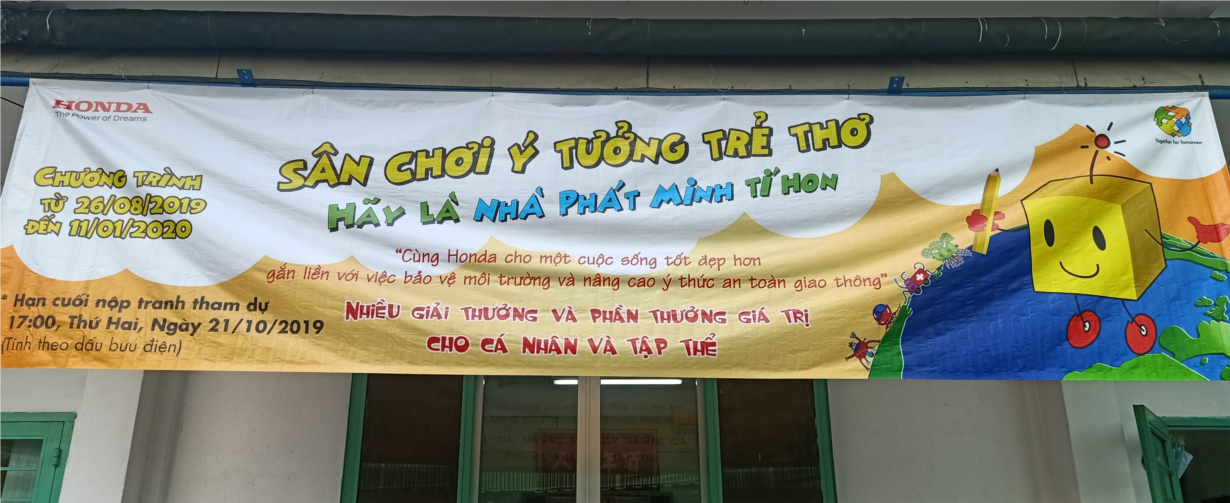 HONDA
The Power of Dreams
Together for Tomorrow
SÂN CHƠI Ý TƯỞNG TRẺ THƠ
HÃY LÀ NHÀ PHÁT MINH TÍ HON
CHƯƠNG TRÌNH
TỪ 26/08/2019
ĐẾN 11/01/2020
"Cùng Honda cho một cuộc sống tốt đẹp hơn
gắn liền với việc bảo vệ môi trường và nâng cao ý thức an toàn giao thông"
* Hạn cuối nộp tranh tham dự
17:00, Thứ Hai, Ngày 21/10/2019
(Tính theo dấu bưu điện)
NHIỀU GIẢI THƯỞNG VÀ PHẦN THƯỞNG GIÁ TRỊ
CHO CÁ NHÂN VÀ TẬP THỂ